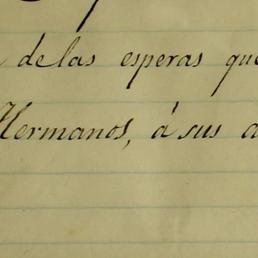 de las esperas que
Hermanos, á sus a